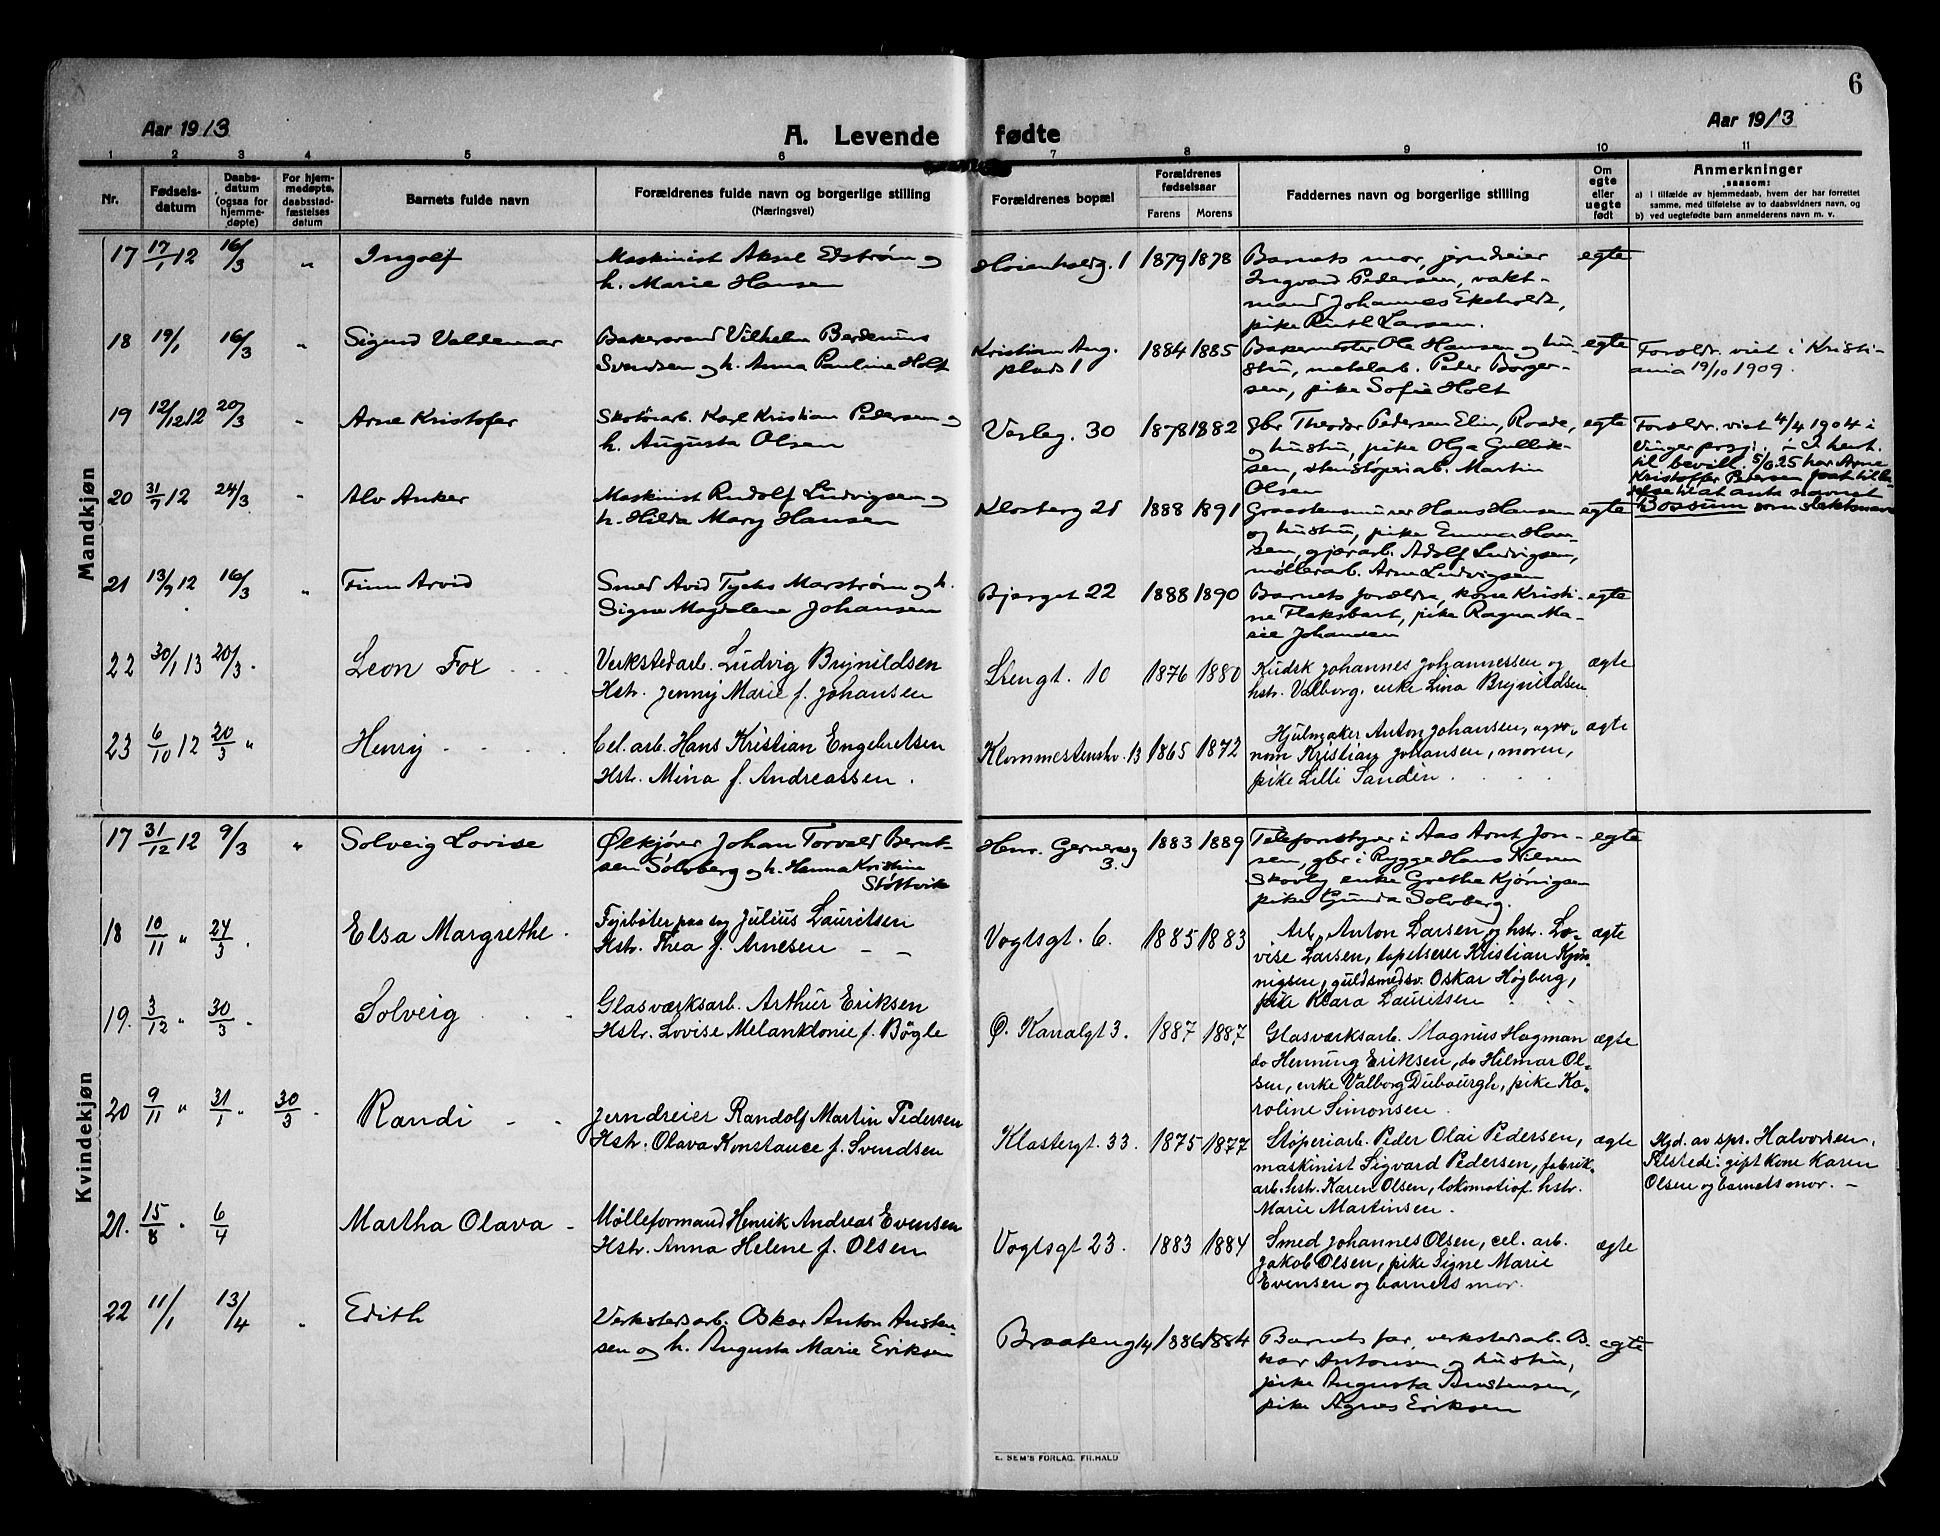 6
Aar 1913
A. Levende fødte
Aar 1913
1 2 3 4 5 6 7 8 9 10 11
Nr.
Fødselsdatum
Daabsdatum (ogsaa for hjemmedøpte)
For hjemmedøpte, daabsstadfæstelses datum
Barnets fulde navn
Forældrenes fulde navn og borgerlige stilling
(Næringsvei)
Forældrenes bopæl
Forældrenes fødselsaar
Farens Morens
Faddernes navn og borgerlige stilling
Om egte eller uegte født
Anmerkninger
saasom:
a) i tilfælde av hjemmedaab, hvem der har forrettet
samme, med tilføielse av to daabsvidners navn, og
b) ved uegtefødte barn anmelderens navn m. v.
Mandkjøn
17 17/1 12 16/3 " Ingolf
Maskinist Aksel Edstrøm og
h. Marie Hansen
1879 1878
Barnets mor, jerndreier
Ingvard Pedersen, vakt-
mand Johannes Ekeholdt,
pike Ruth Larsen.
egte
18 19/1 16/3 " Sigurd Valdemar
Bakersvend Vilhelm
Svendsen og h. Anna Pauline Holt
Kristian Aug.
plads 1
1884 1885
Bakermester Ole Hansen og hu-
stru, metalarb. Peder Borger-
sen, pike Sofie Holt
egte
Forældr. viet i Kristi-
ania 19/10 1909.
19 12/12 12 20/3 " Arne Kristofer
Skotöiarb. Karl Kristian Pedersen og
h. Augusta Olsen
Varleg. 30
1878 1882
gbr Theodor Pedersen Elin, Raade,
og hustru, pike Olga Gullik-
sen, stenstöperiarb. Martin
Olsen
egte
Forældr. viet 4/4 1904 i
Vinger prgj.
til bevill. 25 har Arne
Kristoffer Pedersen faat tilla-
delse til at anta navnet
Bossum som slektsnavn
20 31/7 12 24/3 " Alv Anker
Maskinist Rudolf Ludvigsen og
h. Hilda Mary Hansen
Klosterg 21
1888 1891
Graastensmurer Hans Hansen
og hustru, pike Emma Han-
sen, gjærarb. Adolf Ludvigsen,
møllerarb. Arne Ludvigsen
egte
21 13/9 12 16/3 " Finn Arvid
Smed Avid Marstrøm og h.
Signe Magdalene Johansen
Bjerget 22
1888 1890
Barnets forældre, kone Kristi-
ne, pike Ragna Ma-
rie Johansen
egte
22 30/1 13 20/3. Leon Fox
Verkstedarb. Ludvig Brynildsen
Hstr. Jenny Marie f. Johansen
Stengt. 10
1876 1880
Kudsk Johannes Johannessen og
hstr. Valborg, enke Lina Brynildsen
ægte
23 6/10 12 20/3 " Henry
Cel. arb. Hans Kristian Engebretsen
Hstr. Mina f. Andreassen.
1865 1872
Hjulmaker Anton Johansen, agro-
nom Kristian Johansen, moren,
pike Lilli Sandin
ægte
Kvindekjøn
17 31/12 12 9/3 " Solveig Lovise
Ølkjører Johan Torvald Bernt-
sen Sølvberg og h. Hanna Kristine
Støttvik
Henr. Gernersg
3.
1883 1889
Telefonstyrer i Aas Arnt Jon-
sen, gbr i Rygge Hans Nilsen
Skovly enke Grethe Kjönigsen
pike Gunda Solvberg.
egte
18 10/11 " 24/3. Elsa Margrethe.
Fyrbøter paa sag Julius Lauritsen
Hstr. Thea f. Arnesen
Vogtsgt. 6.
1885 1883
Arb. Anton Larsen og hstr. Lo-
vise Larsen, tapetserer Kristian Kjøn-
nigsen, guldsmedsv. Oskar Høgberg,
pike Klara Lauritsen
ægte
19. 3/12 " 30/3. Solveig
Glasværksarb. Arthur Eriksen
Hstr. Lovise Melanktonie f. Bögle
Ø. Kanalgt 3.
1887 1887
Glasværksarb. Magnus Hagman
do Henning Eriksen, do Hilmar Ol-
sen, enke Valborg Dubourgh, pike Ka-
roline Simonsen.
ægte
20 9/11 " 31/1 " 30/3. Randi
Jerndreier Randolf Martin Pedersen
Hstr. Olava Konstance f. Svendsen
Klostergt. 33.
1875 1877
Støperiarb. Peder Olai Pedersen,
maskinist Sigvard Pedersen, fabrik-
arb. hstr. Karen Olsen, lokomotivf. hstr.
Marie Martinsen.
ægte
Hjd. av spr. Halvorsen.
Tilstede: gift kone Karen
Olsen og barnets mor. –
21. 15/8 " 6/4 Martha Olava
Mølleformand Henrik Andreas Evensen
Hstr. Anna Helene f. Olsen
Vogtsgt 23.
1883 1884
Smed Johannes Olsen, cel. arb.
Jakob Olsen, pike Signe Marie
Evensen og barnets mor.
ægte
22 11/1 13/4 " Edith
Verkstedsarb. Oskar Anton Austen-
sen og h. Augusta Marie Eriksen
Braateng 14
1886 1884
Barnets far, verkstedsarb. Os-
kar Antonsen og hustru,
pike Augusta Austensen,
pike Agnes Eriksen
egte
E. SEM'S FORLAG, FR.HALD